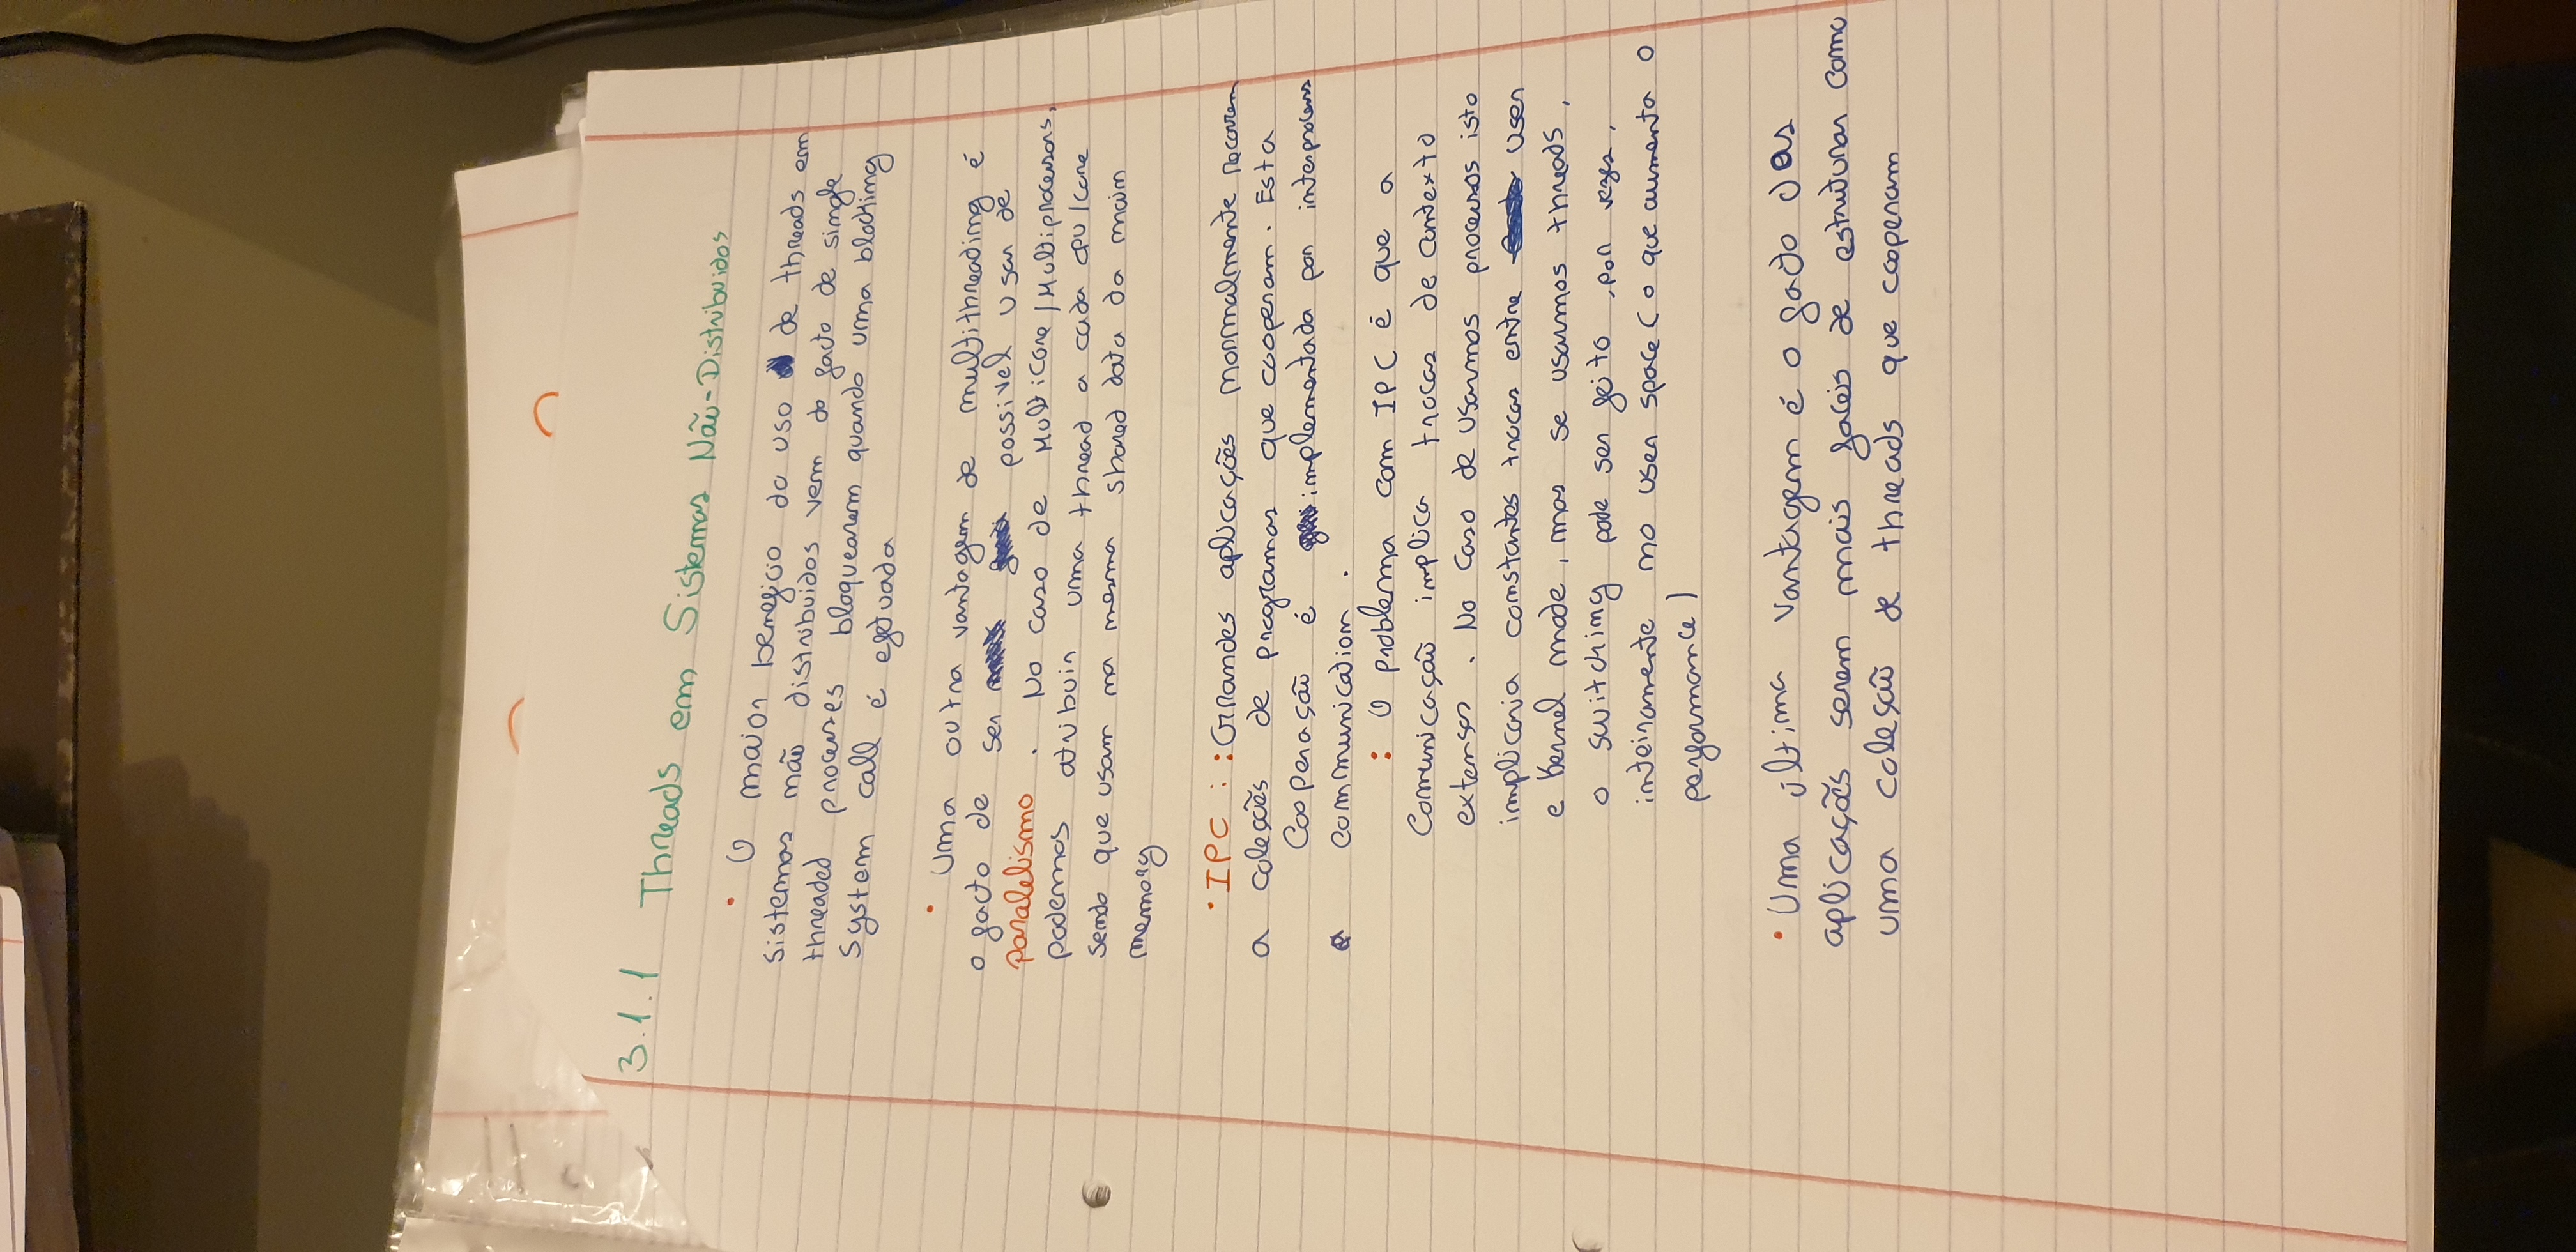 3.1.1 Threads em Sistemas Não-Distribuidos
• O maior beneficio do uso de threads em
sistemas não distribuidos vem do facto de single
threaded processes bloquearem quando uma blocking
system call é efetuada
• Uma outra vantagem de multithreading é
o facto de ser possivel usar de
paralelismo . No caso de Multicore / Multiprocessors,
podemos atribuir uma thread a cada CPU / Core
sendo que usam na mesma shared data da main
memory
• IPC : : Grandes aplicações normalmente recorrem
a coleções de programas que cooperam. Esta
Cooperação é implementada por interprocess
communication .
: O problema com IPC é que a
Comunicação implica trocas de contexto
extensas . No caso de usarmos processos isto
implicaria constantes trocas entre user
e Kernel mode, mas se usarmos threads,
o switching pode ser feito , por vezes,
inteiramente no user space ( o que aumenta o
performance )
• Uma última vantagem é o facto das
aplicações serem mais faceis de estruturar como
uma coleção de threads que cooperam